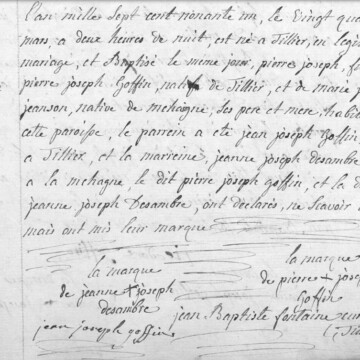 L'an milles Sept cent nonante un, le vingt qua
mars, a deux heures de nuit, est né a Tillier, en legi
mariage, et Baptisé le meme jour, pierre joseph, fi
pierre joseph Goffin, natif de Tillier, et de marie j
jeanson, native de mehaigne, Ses pere et mere, habi
cette paroisse, le parrein a eté jean joseph Goffin
a Tillier, et la marreine, jeanne joseph desambre
a la mehagne, le dit pierre joseph goffin, et la d
jeanne joseph Desambre, ont declarés, ne Scavoir
mais ont mis leur marque
la marque
de jeanne + joseph
desambre
jean joseph goffin
la marque
de pierre + jose
Goffin
jean Baptiste fontaine cur